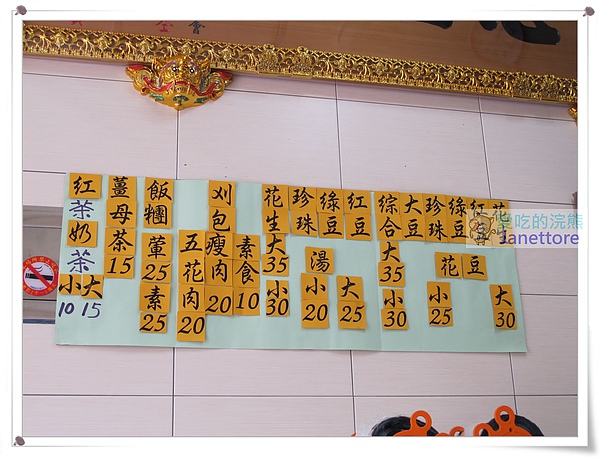 會
紅茶 奶茶
小 大
10 15
薑母茶 15
飯糰
葷 25
素 25
刈包
五花肉 20
瘦肉 20
素食 10
花生
大 35
小 30
珍珠 綠豆 紅豆
湯
小 20
大 25
綜合
大 35
小 30
大豆 珍珠 綠豆 紅豆
花豆
小 25
大 30
愛吃的浣熊
Janettore